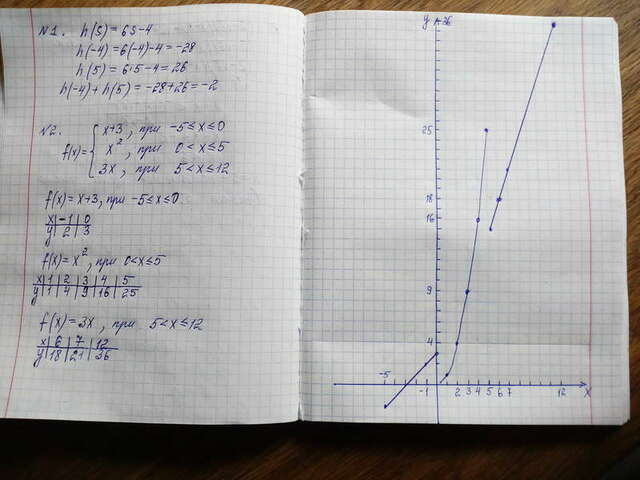 N1. h(s) = 6s-4
h(-4) = 6(-4)-4 = -28
h(5) = 6·5-4 = 26
h(-4)+h(5) = -28+26 = -2
N2. f(x) = { x+3, при -5≤x≤0
x², при 0<x≤5
3x, при 5<x≤12
f(x) = x+3, при -5≤x≤0
x | -1 | 0
y | 2 | 3
f(x) = x², при 0<x≤5
x | 1 | 2 | 3 | 4 | 5
y | 1 | 4 | 9 | 16 | 25
f(x) = 3x, при 5<x≤12
x | 6 | 7 | 12
y | 18 | 21 | 36
y 36
25
18
16
9
4
-5 -1 2 3 4 5 6 7 12 x